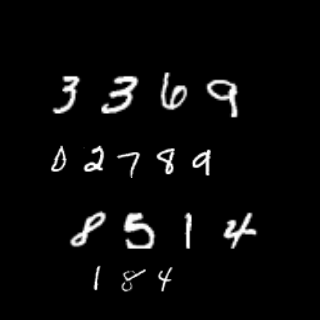 3 3 6 9
0 2 7 8 9
8 5 1 4
1 8 4